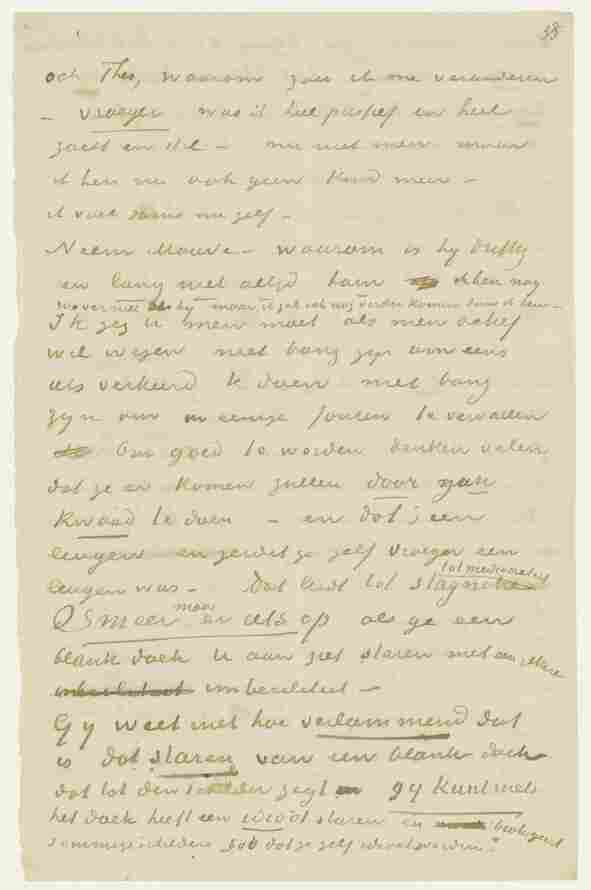 38
och Theo, waarom zou ik me veranderen
– vroeger was ik heel passief en heel
zacht en stil – nu niet meer maar
ik ben nu ook geen kind meer –
ik voel soms me zelf –
Neem Mauve – waarom is hy driftig
en lang niet altijd ik ben nog
zoover niet als hy maar ik zal ook nog verder komen dan ik ben –
Ik zeg u men moet als men actief
wil wezen niet bang zijn om eens
iets verkeerd te doen niet bang
zyn om in eenige fouten te vervallen
Om goed te worden denken velen
dat ze er komen zullen door geen
kwaad te doen – en dat is een
leugen en ge zei ge zelf vroeger een
leugen was – Dat leidt tot stagnatie
tot mediocriteit
Smeer maar er iets op als ge een
blank doek u aan ziet staren met een zekere
imbeciliteit –
Gy weet niet hoe verlammend dat
is dat staren van een blank doek
dat tot den schilder zegt gy kunt niets
het doek heeft een idioot staren en biologeert
sommige schilders zoo dat ze zelf idioot worden